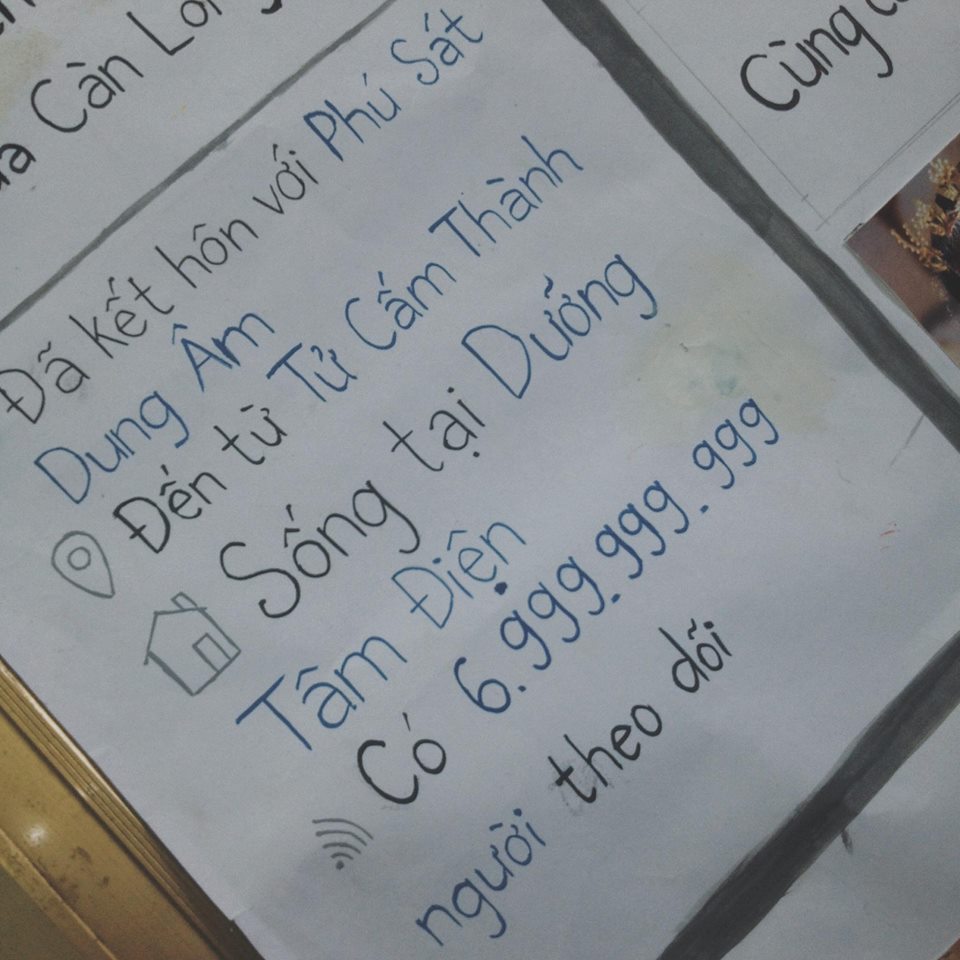 Càn Lon
Cùng
Đã kết hôn với Phú Sát
Dung Âm
Đến từ Tử Cấm Thành
Sống tại Dưỡng
Tâm Điện
Có 6.999.999.999
người theo dõi